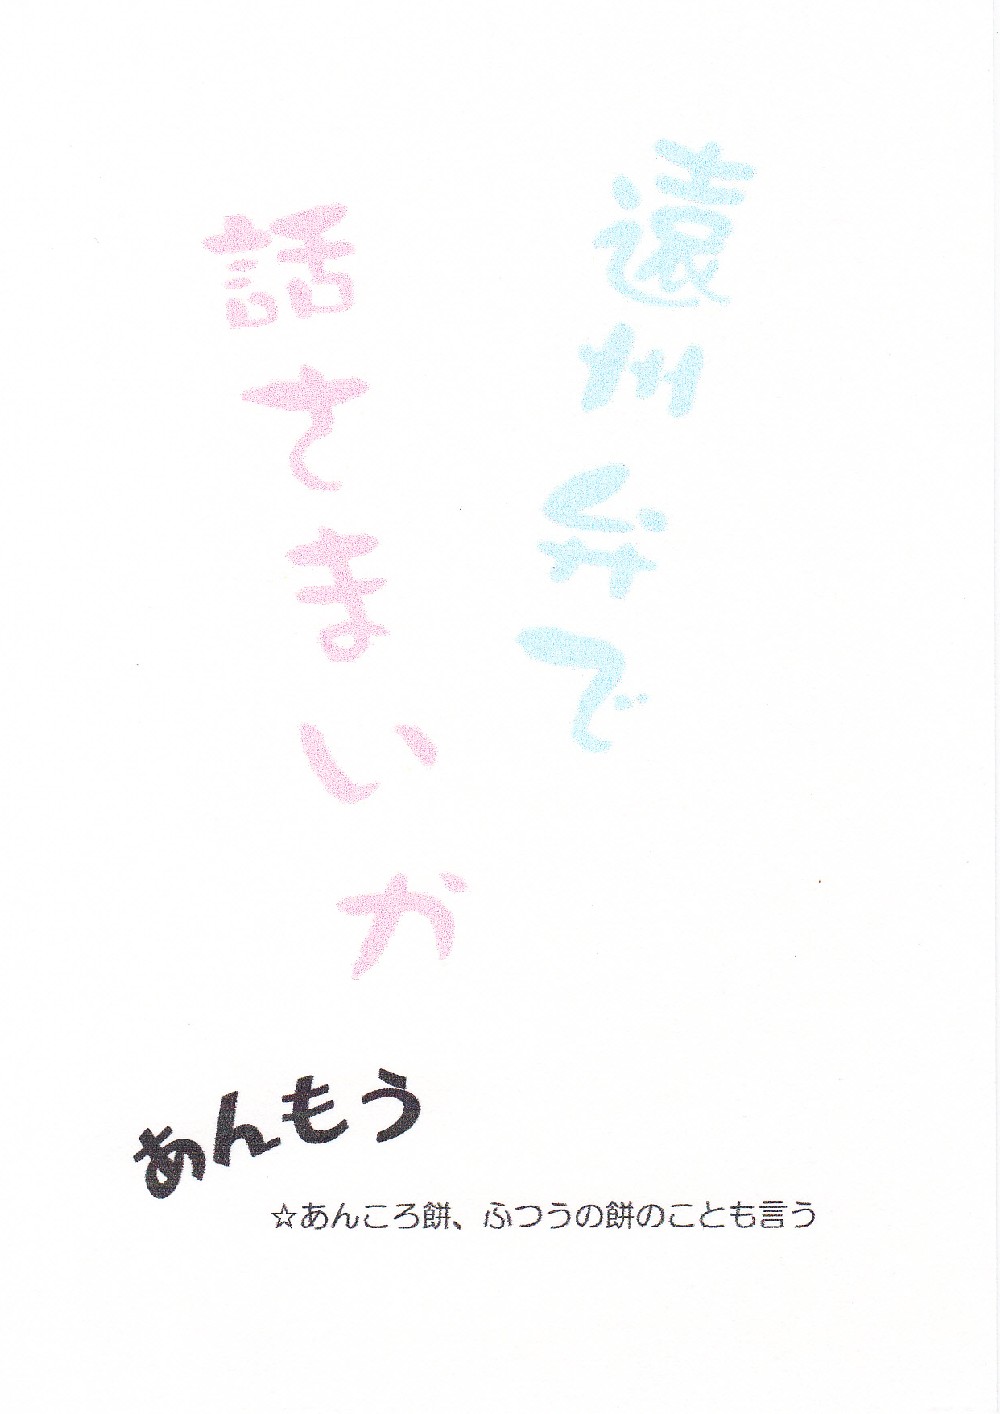 遠州弁で
話てまいか
あんもう
☆あんころ餅、ふつうの餅のことも言う